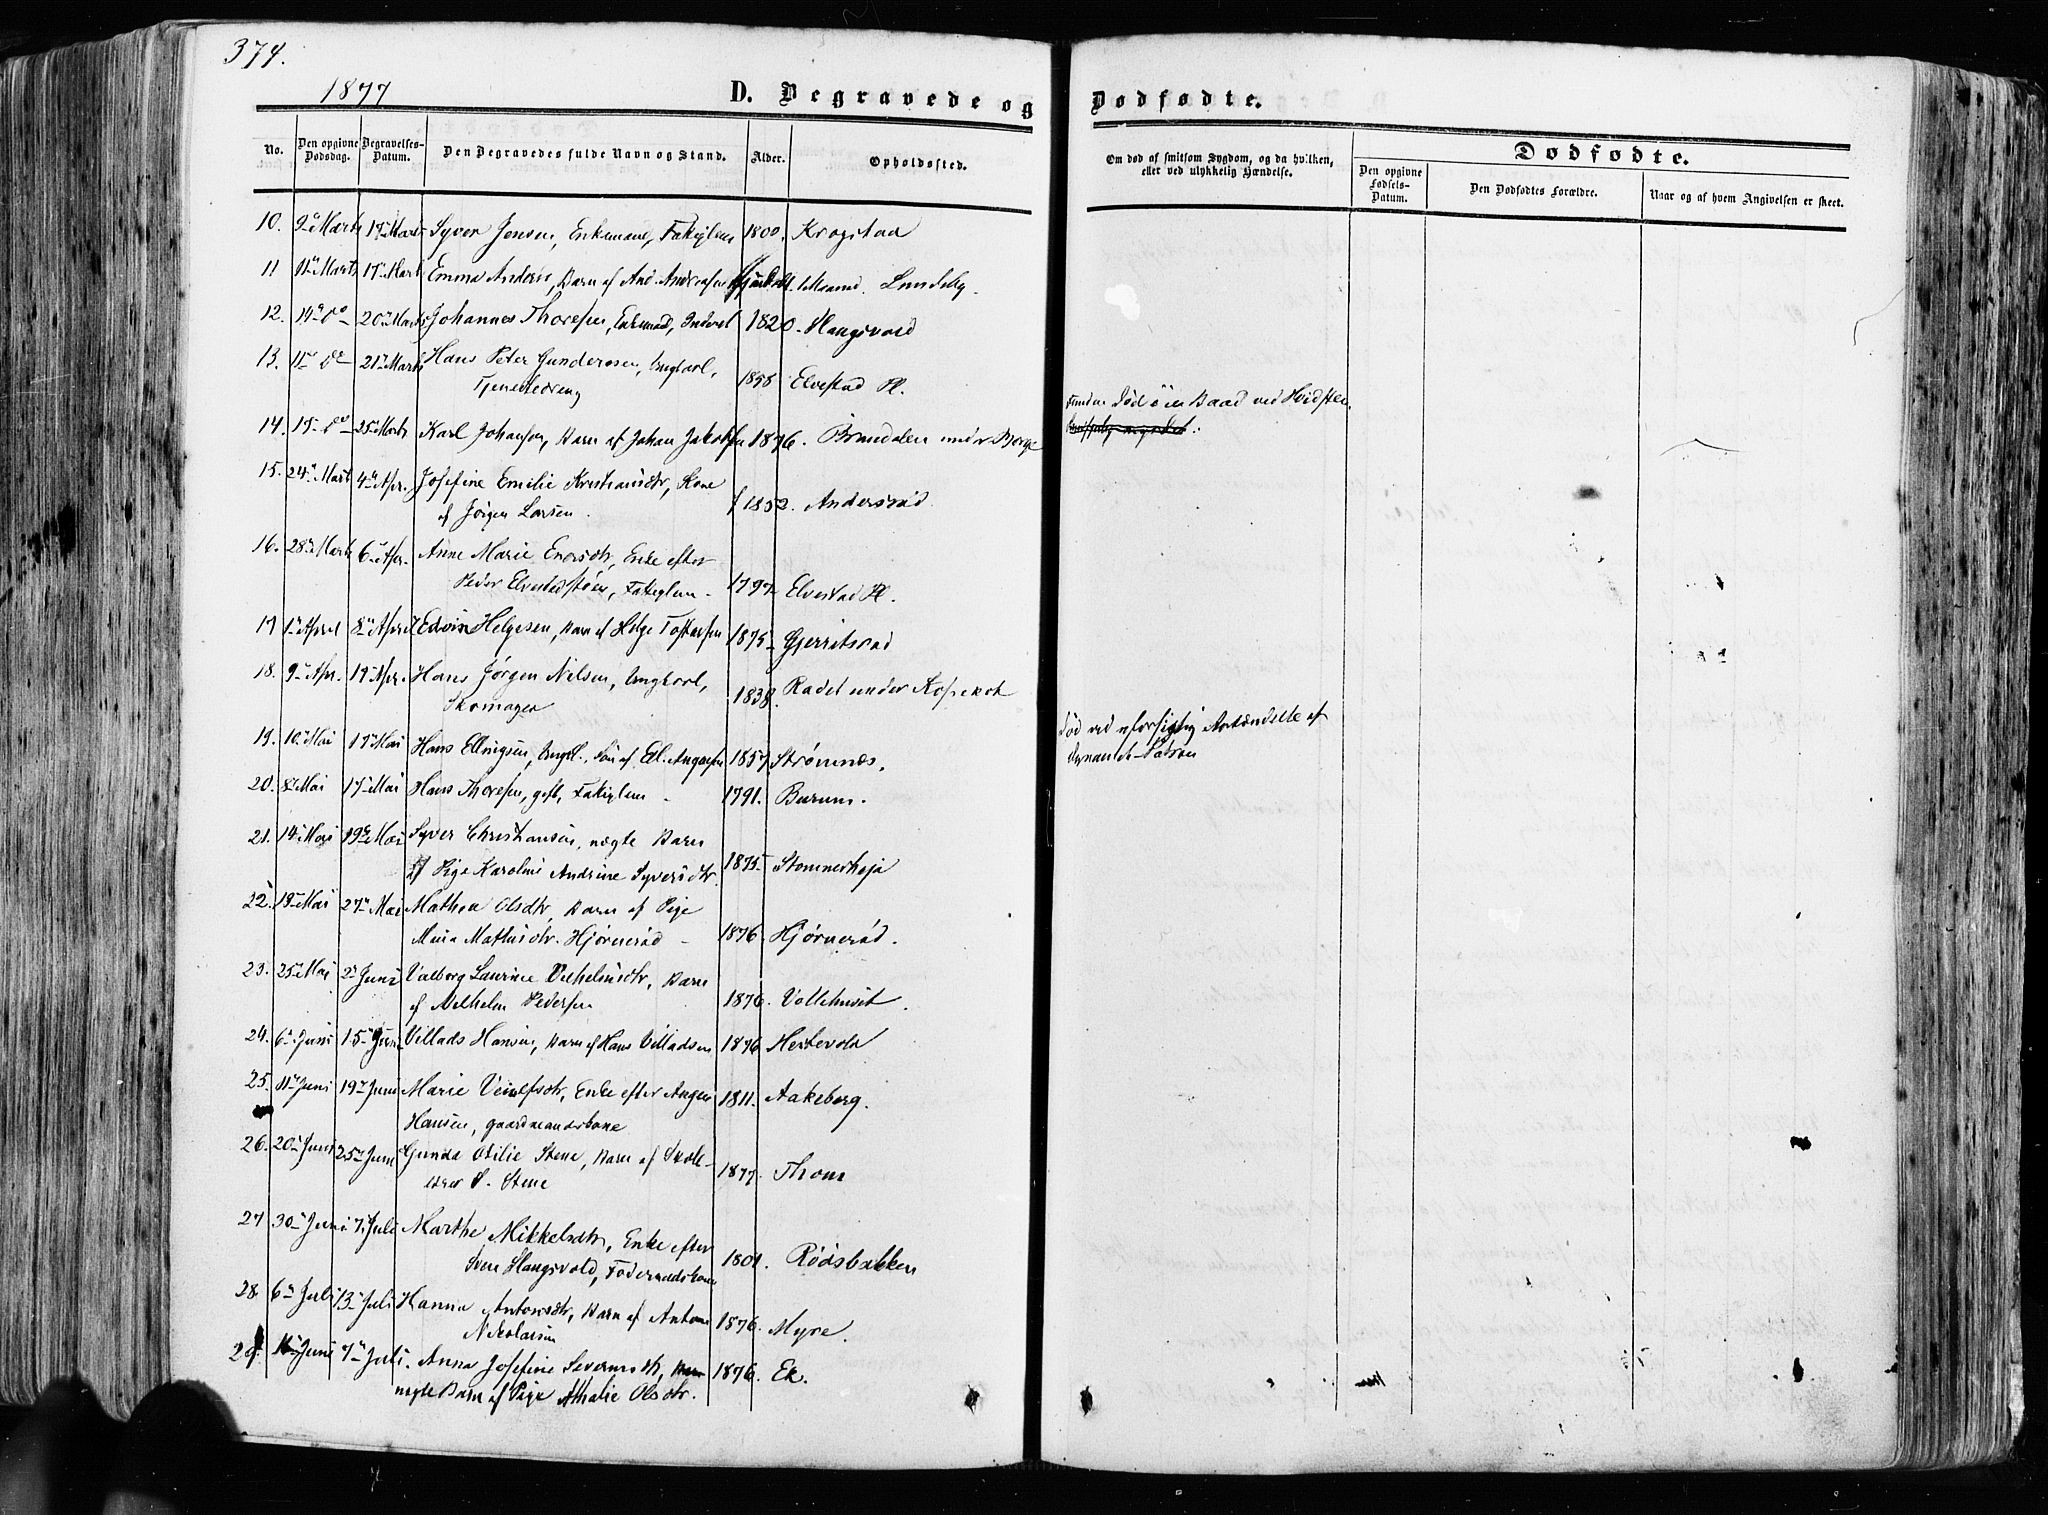 374.
1877
D. Begravede og Dødfødte.
No. Den opgivne Dødsdag. Begravelses-Datum. Den Begravedes fulde Navn og Stand. Alder. Opholdssted.
Om død af smitsom Sygdom, og da hvilken, eller ved ulykkelig Hændelse.
Dødfødte.
Den opgivne Fødsels-Datum. Den Dødfødtes Forældre. Naar og af hvem Angivelsen er skeet.
10. 9de Marts 17de Marts Syver Jensen, Enkemand, Fattiglem 1800. Krogstad
11 11te Marts 17de Marts Emma Anders, Barn af And. Andersen Maaned. Lundeby
12. 14de do 20de Marts Johannes Thoresen, Enkemand, Inderst 1820 Haugsvold
13. 11te do 21de Marts Hans Peter Gundersen, Ungkarl,
Tjenestedreng 1858 Elvestad Pl.
Funden død i en Baad ved Hvidsten.
14. 15de do 25de Marts Karl Johansen, Barn af Johan Jakobsen 1876. Brændalen under Borge
15. 24de Marts 4de Apr. Josefine Emilie Kristiansdtr, Kone
af Jørgen Larsen. f 1852. Andersrød
16. 28de Marts 6te Apr. Anne Marie Enersdtr, Enke efter
Peder Elvestadstøen, Fattiglem 1797 Elvestad Pl.
17 1ste April 8de April Edvin Helgesen, Barn af Helge Tostensen 1875 Gjerritsrød
18. 9de Apr. 17de Apr. Hans Jørgen Nilsen, Ungkarl,
Skomager 1838. Rødet under Kopsrød
19. 10de Mai 17de Mai Hans Ellingsen, Ungk., Søn af El. Aagesen 1857 Strømnæs.
Død ved uforsigtig Antændelse af
Dynamit-Patron
20. 8de Mai 17de Mai Hans Thoresen, gift, Fattiglem 1791. Burum.
21. 14de Mai 19de Mai Syver Christiansen, uægte Barn
af Pige Karoline Andrine Syversdtr. 1875 Stomnerhøja
22. 18de Mai 27de Mai Mathea Olsdtr, Barn af Pige
Maria Mathisdtr. Hjørnerød 1876. Hjørnerød.
23. 25de Mai 2den Juni Valborg Laurine Vilhelmsdtr, Barn
af Vilhelm Pedersen 1876. Vollehuset.
24. 6te Juni 15de Juni Villads Hansen, Barn af Hans Villadsen 1876 Hestevold
25. 11te Juni 19de Juni Marie Veiulfsdtr, Enke efter Aagen
Hansen, gaardmandskone 1811. Aakeberg.
26. 20de Juni 25de Juni Gunda Otilie Stene, Barn af Skole-
lærer P. Stene 1877. Thom
27 30te Juni 7. Juli Marthe Mikkelsdtr, Enke efter
Sven Haugsvold, Føderaadskone 1801. Rødsbakken
28. 6te Juli 13de Juli Hanna Antonsdtr, Barn af Anton
Nikolaisen 1876. Myre.
29. Juni 7de Juli. Anna Josefine Severinsdtr,
uægte Barn af Pige Athalie Olsdtr. 1876. Ek.